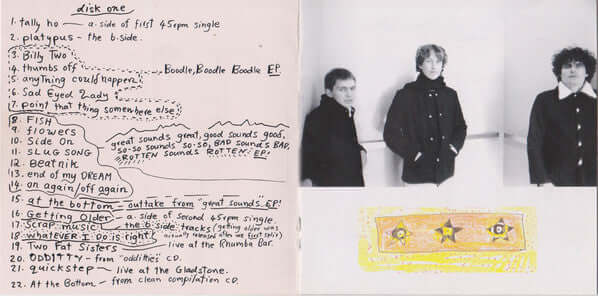 disk one
1. tally ho - a.side of first 45rpm single
2. platypus - the b.side.
3. Billy Two
4. thumbs off
Boodle, Boodle Boodle EP.
5. anything could happen
6. Sad Eyed Lady
7. point that thing somewhere else
8. FISH
9. flowers
10. Side On
great sounds great, good sounds good,
11. SLUG SONG
so-so sounds so-so, BAD sounds BAD,
12. Beatnik
ROTTEN sounds ROTTEN! EP!
13. end of my DREAM
14. on again/off again
15. at the bottom - outtake from "great sounds" EP!
16. Getting Older - a.side of second 45rpm single.
17. Scrap music - the b.side tracks (getting older was
18. whatEVER I do is right actually released after we first split)
19. Two Fat Sisters - live at the Rhumba Bar.
20. ODDITTY - from "oddities" CD.
21. quickstep - live at the Gladstone.
22. At the Bottom - from clean compilation CD.